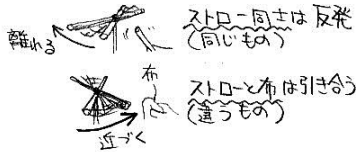 離れる
ストロー同さは反発
(同じもの)
布
ストローと布は引き合う
(違うもの)
近づく